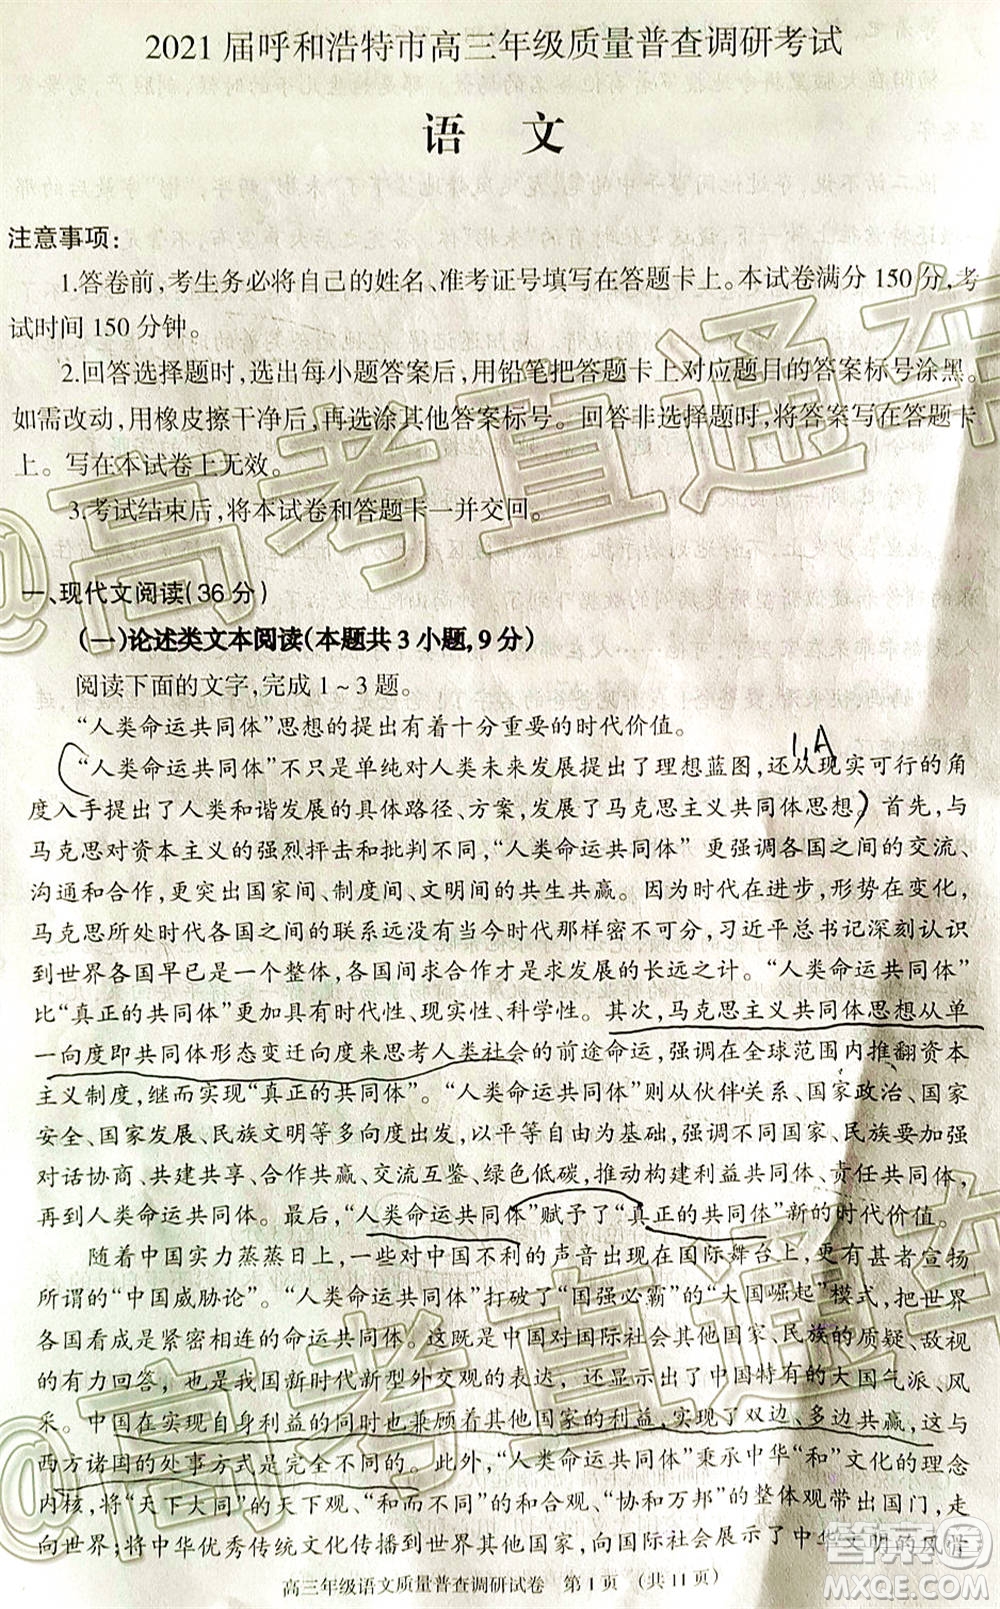 2021届呼和浩特市高三年级质量普查调研考试
语 文
注意事项:
1.答卷前,考生务必将自己的姓名、准考证号填写在答题卡上。本试卷满分150分,考
试时间150分钟。
2.回答选择题时,选出每小题答案后,用铅笔把答题卡上对应题目的答案标号涂黑。
如需改动,用橡皮擦干净后,再选涂其他答案标号。回答非选择题时,将答案写在答题卡
上。写在本试卷上无效。
3.考试结束后,将本试卷和答题卡一并交回。
一、现代文阅读(36分)
(一)论述类文本阅读(本题共3小题,9分)
阅读下面的文字,完成1~3题。
“人类命运共同体”思想的提出有着十分重要的时代价值。
1.A
“人类命运共同体”不只是单纯对人类未来发展提出了理想蓝图,还从现实可行的角
度入手提出了人类和谐发展的具体路径、方案,发展了马克思主义共同体思想。首先,与
马克思对资本主义的强烈抨击和批判不同,“人类命运共同体”更强调各国之间的交流、
沟通和合作,更突出国家间、制度间、文明间的共生共赢。因为时代在进步,形势在变化,
马克思所处时代各国之间的联系远没有当今时代那样密不可分。习近平总书记深刻认识
到世界各国早已是一个整体,各国间求合作才是求发展的长远之计。“人类命运共同体”
比“真正的共同体”更具有时代性、现实性、科学性。其次,马克思主义共同体思想从单
一向度即共同体形态变迁向度来思考人类社会的前途命运,强调在全球范围内推翻资本
主义制度,继而实现“真正的共同体”。“人类命运共同体”则从伙伴关系、国家政治、国家
安全、国家发展、民族文明等多向度出发,以平等自由为基础,强调不同国家、民族要加强
对话协商、共建共享、合作共赢、交流互鉴、绿色低碳,推动构建利益共同体、责任共同体,
再到人类命运共同体。最后,“人类命运共同体”赋予了“真正的共同体”新的时代价值。
随着中国实力蒸蒸日上,一些对中国不利的声音出现在国际舞台上,更有甚者宣扬
所谓的“中国威胁论”。“人类命运共同体”打破了“国强必霸”的“大国崛起”模式,把世界
各国看成是紧密相连的命运共同体。这既是中国对国际社会其他国家、民族的质疑、敌视
的有力回答,也是我国新时代新型外交观的表达,还展示出了中国特有的大国气派、风
采。中国在实现自身利益的同时也兼顾着其他国家的利益,实现了双边、多边共赢,这与
西方诸国的处事方式是完全不同的。此外,“人类命运共同体”秉承中华“和”文化的理念
内核,将“天下大同”的天下观、“和而不同”的和合观、“协和万邦”的整体观带出国门,走
向世界;将中华优秀传统文化传播到世界其他国家,向国际社会展示了中华文明的风
高三年级语文质量普查调研试卷 第1页 (共11页)
@高考直通车
@高考直通车
答案圈